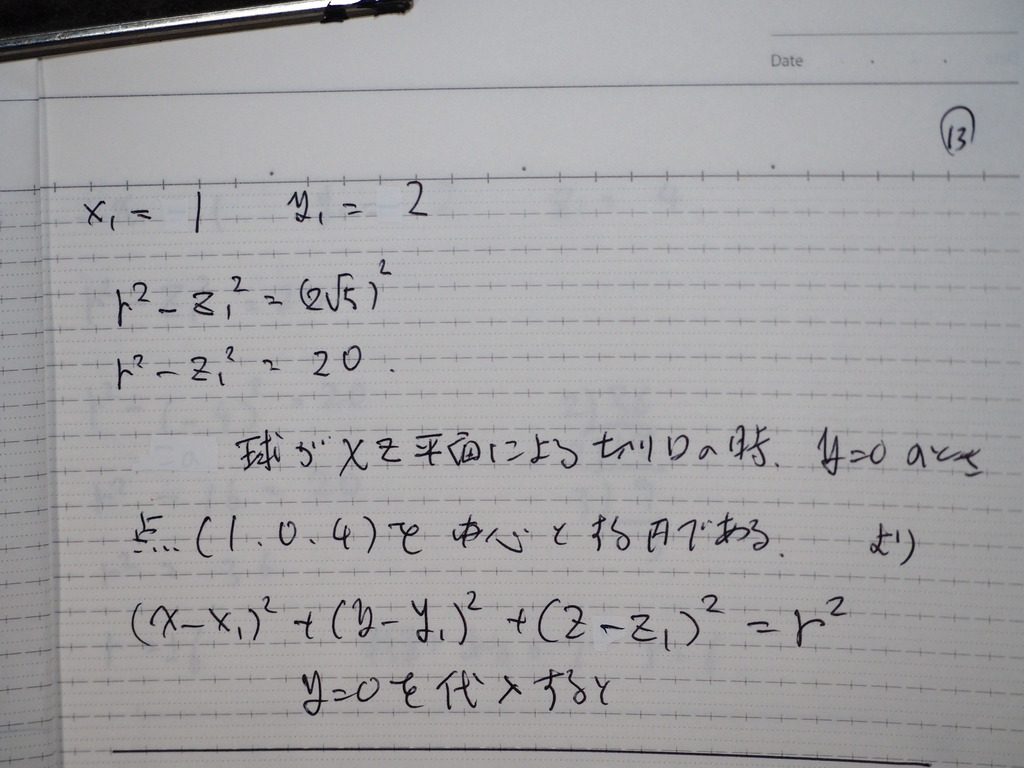 Date
13
x₁ = 1 y₁ = 2
r² - z₁² = (2√5)²
r² - z₁² = 20.
球が xz 平面による切り口の時、y=0 のとき
点(1.0.4)を中心とする円である。 より
(x-x₁)² + (y-y₁)² + (z-z₁)² = r²
y=0を代入すると